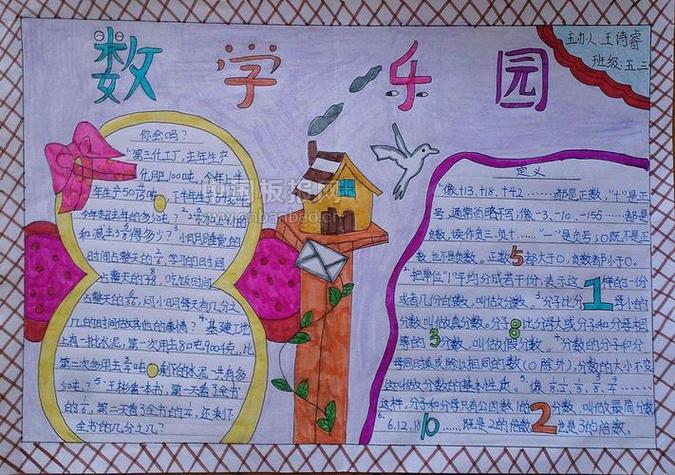 数学乐园
主办人:王诗睿
班级:五三
你会吗?
1.第三化工厂,去年生产
化肥100吨,今年上半
年生产50
今年超去年的多少吨?
和减去
得多少?
3.小明用睡觉的
时间占整天的
,学习的时间
占整天的
,吃饭时间
占整天的
,问小明每天有几分之
几的时间做其他的事情?4.基建工地
上有一批水泥,第一次用去8吨900千克,比
第二次多用去
吨,剩下的水泥
吨?5.王彬看一本书,第一天看了全书
的
,第二天看了全书的
,还剩下
全书的几分之几?
中国板报网
cnbanbao.cn
定义
1.像+13、+18、+42……都是正数,“+”是正
号,通常省略不写,像-3、-10、-155……都是
负数,读作负三、负十……“-”是负号;0既不是正
数,也不是负数。正数5都大于0,负数都小于0。
2.把单位“1”平均分成若干份,表示这1样的一份
或者几份的数,叫做分数。3.分子比分1母小的
分数叫做真分数。分子8比分母大或分子和分母相
等的3分数,叫做假分数。4.分数的分子和分
母同时乘或除以相同的数(0除外),分数的大小不变
这叫做分数的基本性质。5.像
这样,分子和分母只有公因数1的2分数,叫做最简分数
6.6、12、18、10……既是2的倍数,也是3的倍数。